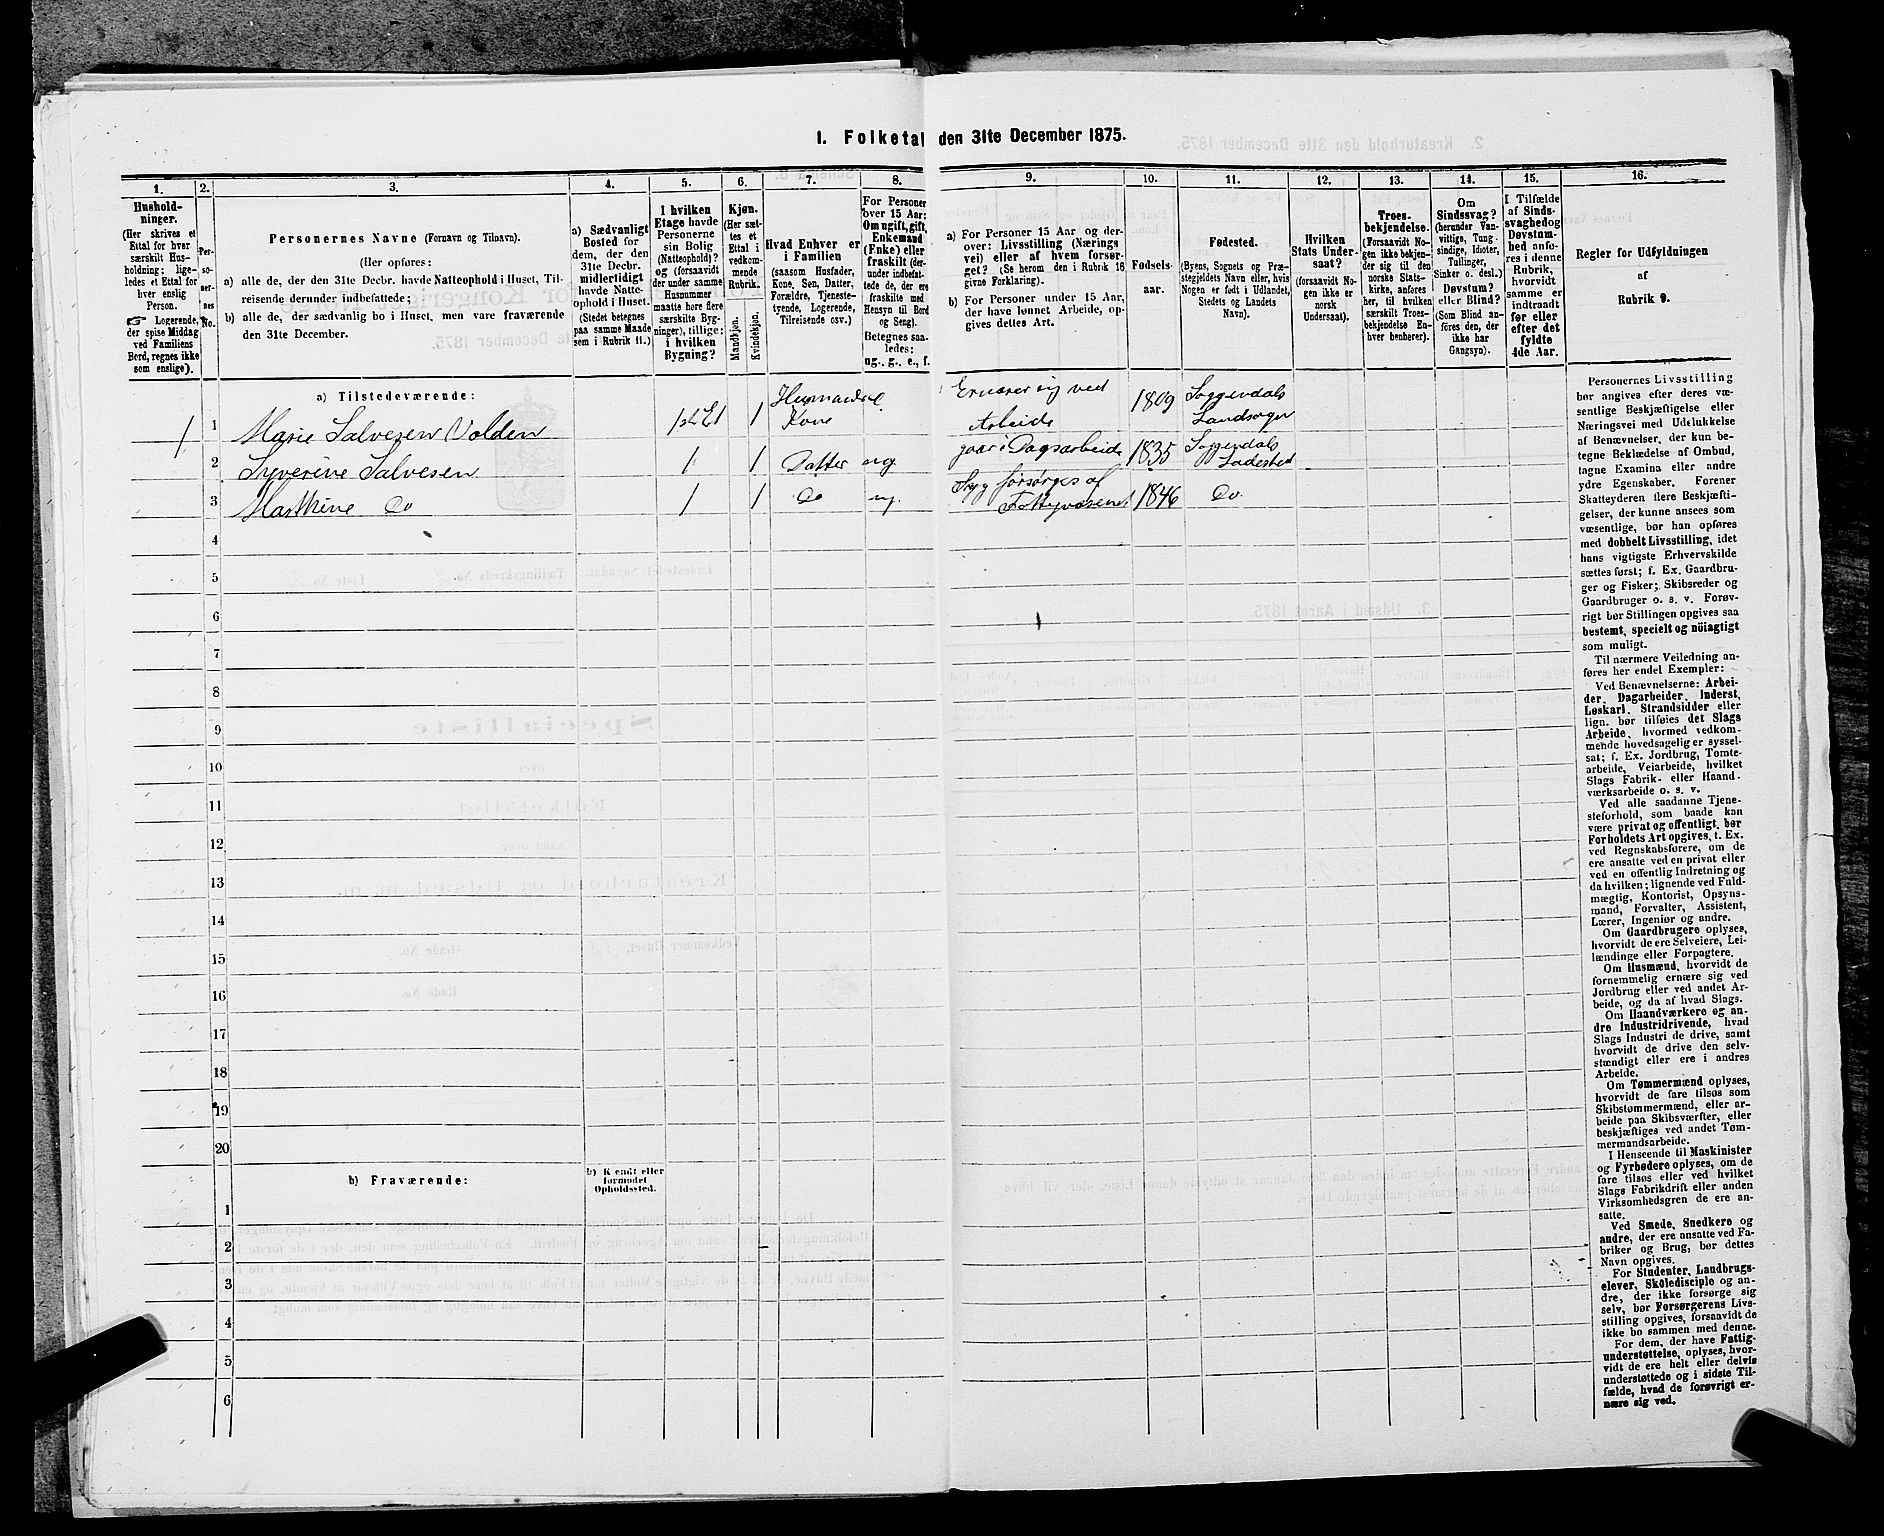 1. Folketal den 31te December 1875.
1.
2.
3.
4.
5.
6.
7.
8.
9.
10.
11.
12.
13.
14.
15.
16.
Hushold-
ninger.
(Her skrives et
Ettal for hver
særskilt Hus-
holdning; lige-
ledes et Ettal for
hver enslig
Person.
☞ Logerende,
der spise Middag
ved Familiens
Bord, regnes ikke
som enslige).
Per-
so-
ner-
nes
No.
Personernes Navne (Fornavn og Tilnavn).
(Her opføres:
a) alle de, der den 31te Decbr. havde Natteophold i Huset, Til-
reisende derunder indbefattede;
b) alle de, der sædvanlig bo i Huset, men vare fraværende
den 31te December.
a) Sædvanligt
Bosted for
dem, der den
31te Decbr.
midlertidigt
havde Natte-
ophold i Huset.
(Stedet betegnes
paa samme Maade
som i Rubrik 11.)
I hvilken
Etage havde
Personerne
sin Bolig
(Natteophold)?
og (forsaavidt
der under samme
Husnummer
maatte høre flere
særskilte Byg-
ninger), tillige:
i hvilken
Bygning?
Kjøn.
(Her sæt-
tes et
Ettal i
vedkom-
mende
Rubrik.
Mandkjøn.
Kvindekjøn.
Hvad Enhver er
i Familien
(saasom Husfader,
Kone, Søn, Datter,
Forældre, Tjeneste-
tyende, Logerende,
Tilreisende osv.)
For Personer
over 15 Aar:
Om ugift, gift,
Enkemand
(Enke) eller
fraskilt (der-
under indbefat-
tede de, der ere
fraskilte med
Hensyn til Bord
og Seng).
Betegnes saa-
ledes:
ug., g., e., f.
a) For Personer 15 Aar og der-
over: Livsstilling (Nærings
vei) eller af hvem forsør-
get? (Se herom den i Rubrik 16
givne Forklaring).
b) For Personer under 15 Aar,
der have lønnet Arbeide, op-
gives dettes Art.
Fødsels-
aar.
Fødested.
(Byens, Sognets og Præ-
stegjeldets Navn eller, hvis
Nogen er født i Udlandet,
Stedets og Landets
Navn).
Hvilken
Stats Under-
saat?
(forsaavidt No-
gen ikke er
norsk
Undersaat).
Troes-
bekjendelse.
(Forsaavidt No-
gen ikke bekjen-
der sig til den
norske Stats-
kirke, anføres
her, til hvilken
særskilt Troes-
bekjendelse En-
hver henhører).
Om
Sindssvag?
(herunder Van-
vittige, Tung-
sindige, Idioter,
Tullinger,
Sinker o. desl.)
Døvstum?
eller Blind?
(Som Blind an-
føres den, der
ikke har
Gangsyn).
I Tilfælde
af Sinds-
svaghed og
Døvstum-
hed anfø-
res i denne
Rubrik,
hvorvidt
samme er
indtraadt
før eller
efter det
fyldte
4de Aar.
Regler for Udfyldningen
af
Rubrik 9.
a) Tilstedeværende:
1
1 Marie Salvesen Valden 1ste Et 1 Husmands
Kone Ernærer sig ved
Arbeide 1809 Soggendals
Landsogn
2 Syverine Salvesen 1 1 Datter ug gaar i Dagsarbeide 1835 Soggendals
Ladested
3 Marthine Do 1 1 Do ug. Syg forsørges af
Fattigvæsenet 1846 Do.
4
5
6
7
8
9
10
11
12
13
14
15
16
17
18
19
20
b) Fraværende:
b) Kjendt eller
formodet
Opholdssted.
1
2
3
4
5
6
Personernes Livsstilling
bør angives efter deres væ-
sentlige Beskjæftigelse eller
Næringsvei med Udelukkelse
af Benævnelser, der kun be-
tegne Beklædelse af Ombud,
tagne Examina eller andre
ydre Egenskaber. Forener
Skatteyderen flere Beskjæfti-
gelser, der kunne ansees som
væsentlige, bør han opføres
med dobbelt Livsstilling, idet
hans vigtigste Erhvervskilde
sættes først; f. Ex. Gaardbru-
ger og Fisker; Skibsreder og
Gaardbruger o. s. v. Forøv-
rigt bør Stillingen opgives saa
bestemt, specielt og nöiagtigt
som muligt.
Til nærmere Veiledning an-
føres her endel Exempler:
Ved Benævnelserne: Arbei-
der, Dagarbeider, Inderst,
Løskarl, Strandsidder eller
lign. bør tilføies det Slags
Arbeide, hvormed vedkom-
mende hovedsagelig er syssel-
sat; f. Ex. Jordbrug, Tomte-
arbeide, Veiarbeide, hvilket
Slags Fabrik- eller Haand-
værksarbeide o. s. v.
Ved alle saadanne Tjene-
steforhold, som baade kan
være privat og offentligt, bør
Forholdets Art opgives, t. Ex.
ved Regnskabsførere, om de
ere ansatte ved en privat eller
ved en offentlig Indretning og
da hvilken; lignende ved Fuld-
mægtig, Kontorist, Opsyns-
mand, Forvalter, Assistent,
Lærer, Ingeniør og andre.
Om Gaardbrugere oplyses,
hvorvidt de ere Selveiere, Lei-
lændinge eller Forpagtere.
Om Husmænd, hvorvidt de
fornemmelig ernære sig ved
Jordbrug eller ved andet Ar-
beide, og da af hvad Slags.
Om Haandværkere og an-
dre Industridrivende, hvad
Slags Industri de drive, samt
hvorvidt de drive den selv-
stændigt eller ere i andres
Arbeide.
Om Tømmermænd oplyses,
hvorvidt de fare tilsøs som
Skibstømmermænd, eller ar-
beide paa Skibsværfter, eller
beskjæftiges ved andet Tøm-
mermandsarbeide.
I Henseende til Maskinister
og Fyrbødere oplyses, om de
fare tilsøs eller ved hvilket
Slags Fabrikdrift eller anden
Virksomhedsgren de ere an-
satte.
Ved Smede, Snedkere og
andre, der ere ansatte ved Fa-
briker og Brug, bør dettes
Navn opgives.
For Studenter, Landbrugs-
elever, Skoledisciple og an-
dre, der ikke forsørge sig
selv, bør Forsørgerens Livs-
stilling opgives, forsaavidt de
ikke bo sammen med denne.
For dem, der have Fattig-
understøttelse, oplyses, hvor-
vidt de ere helt eller delvis
understøttede og i sidste Til-
fælde, hvad de forøvrigt er-
nære sig ved.